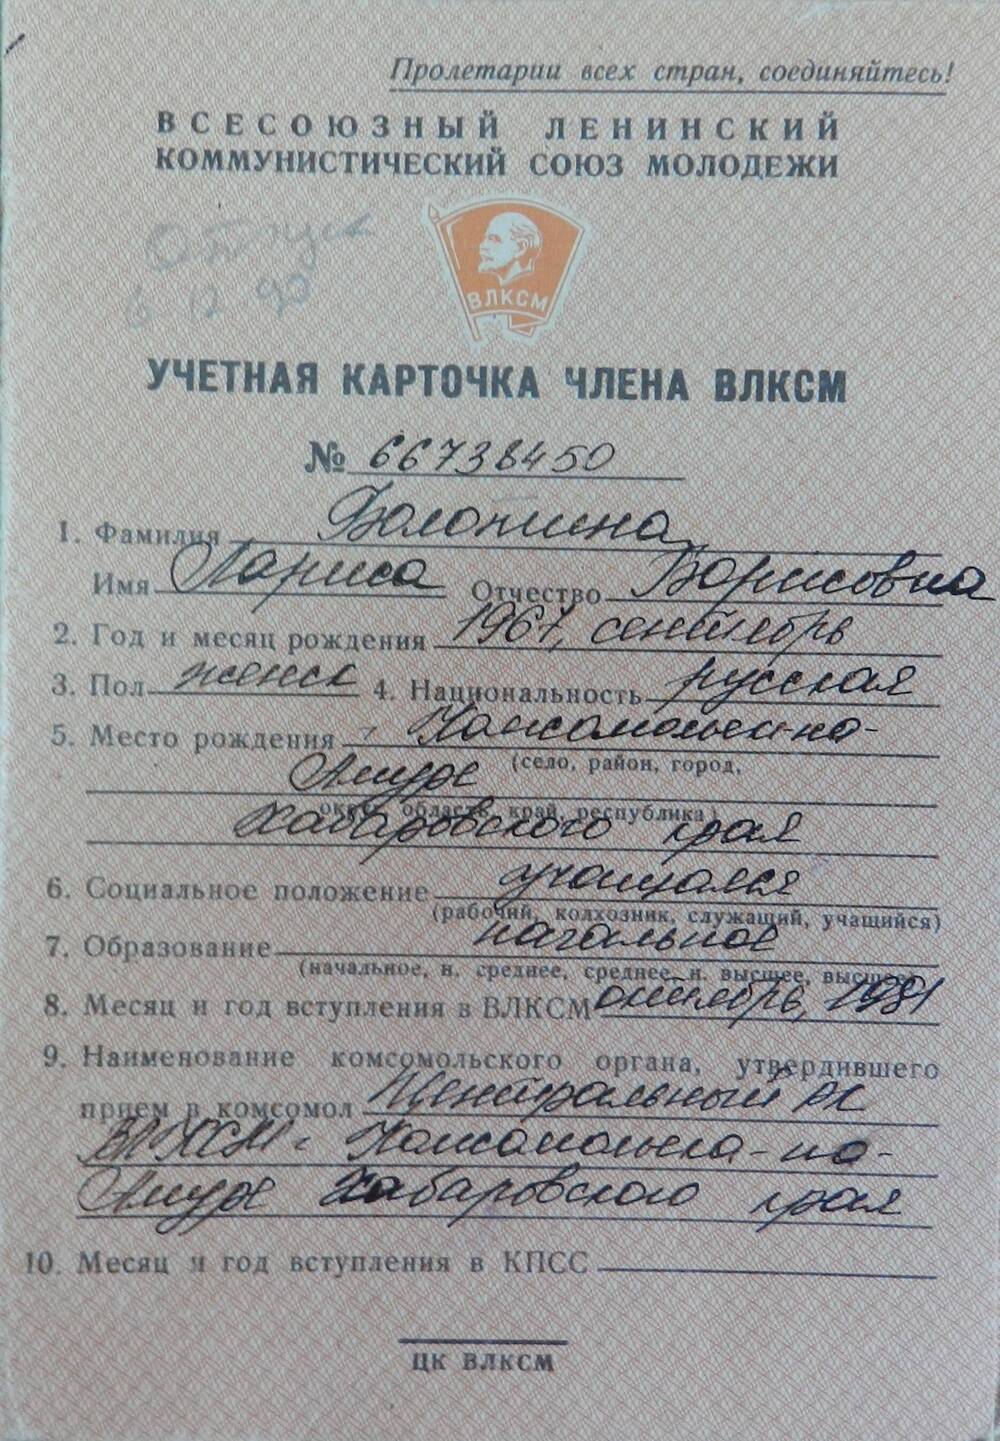 Пролетарии всех стран, соединяйтесь!
ВСЕСОЮЗНЫЙ ЛЕНИНСКИЙ
КОММУНИСТИЧЕСКИЙ СОЮЗ МОЛОДЕЖИ
Отпуск
6 12 90
ВЛКСМ
УЧЕТНАЯ КАРТОЧКА ЧЛЕНА ВЛКСМ
№ 66738450
1. Фамилия
Имя Лариса Отчество Борисовна
2. Год и месяц рождения 1967, сентябрь
3. Пол женск 4. Национальность русская
5. Место рождения г Комсомольск-на-
(село, район, город,
Амуре
округ, область, край, республика)
Хабаровского края
6. Социальное положение учащаяся
(рабочий, колхозник, служащий, учащийся)
7. Образование начальное
(начальное, н. среднее, среднее, н. высшее, высшее)
8. Месяц и год вступления в ВЛКСМ октябрь, 1981
9. Наименование комсомольского органа, утвердившего
прием в комсомол Центральный РК
ВЛКСМ г. Комсомольска-на-
Амуре Хабаровского края
10. Месяц и год вступления в КПСС
ЦК ВЛКСМ